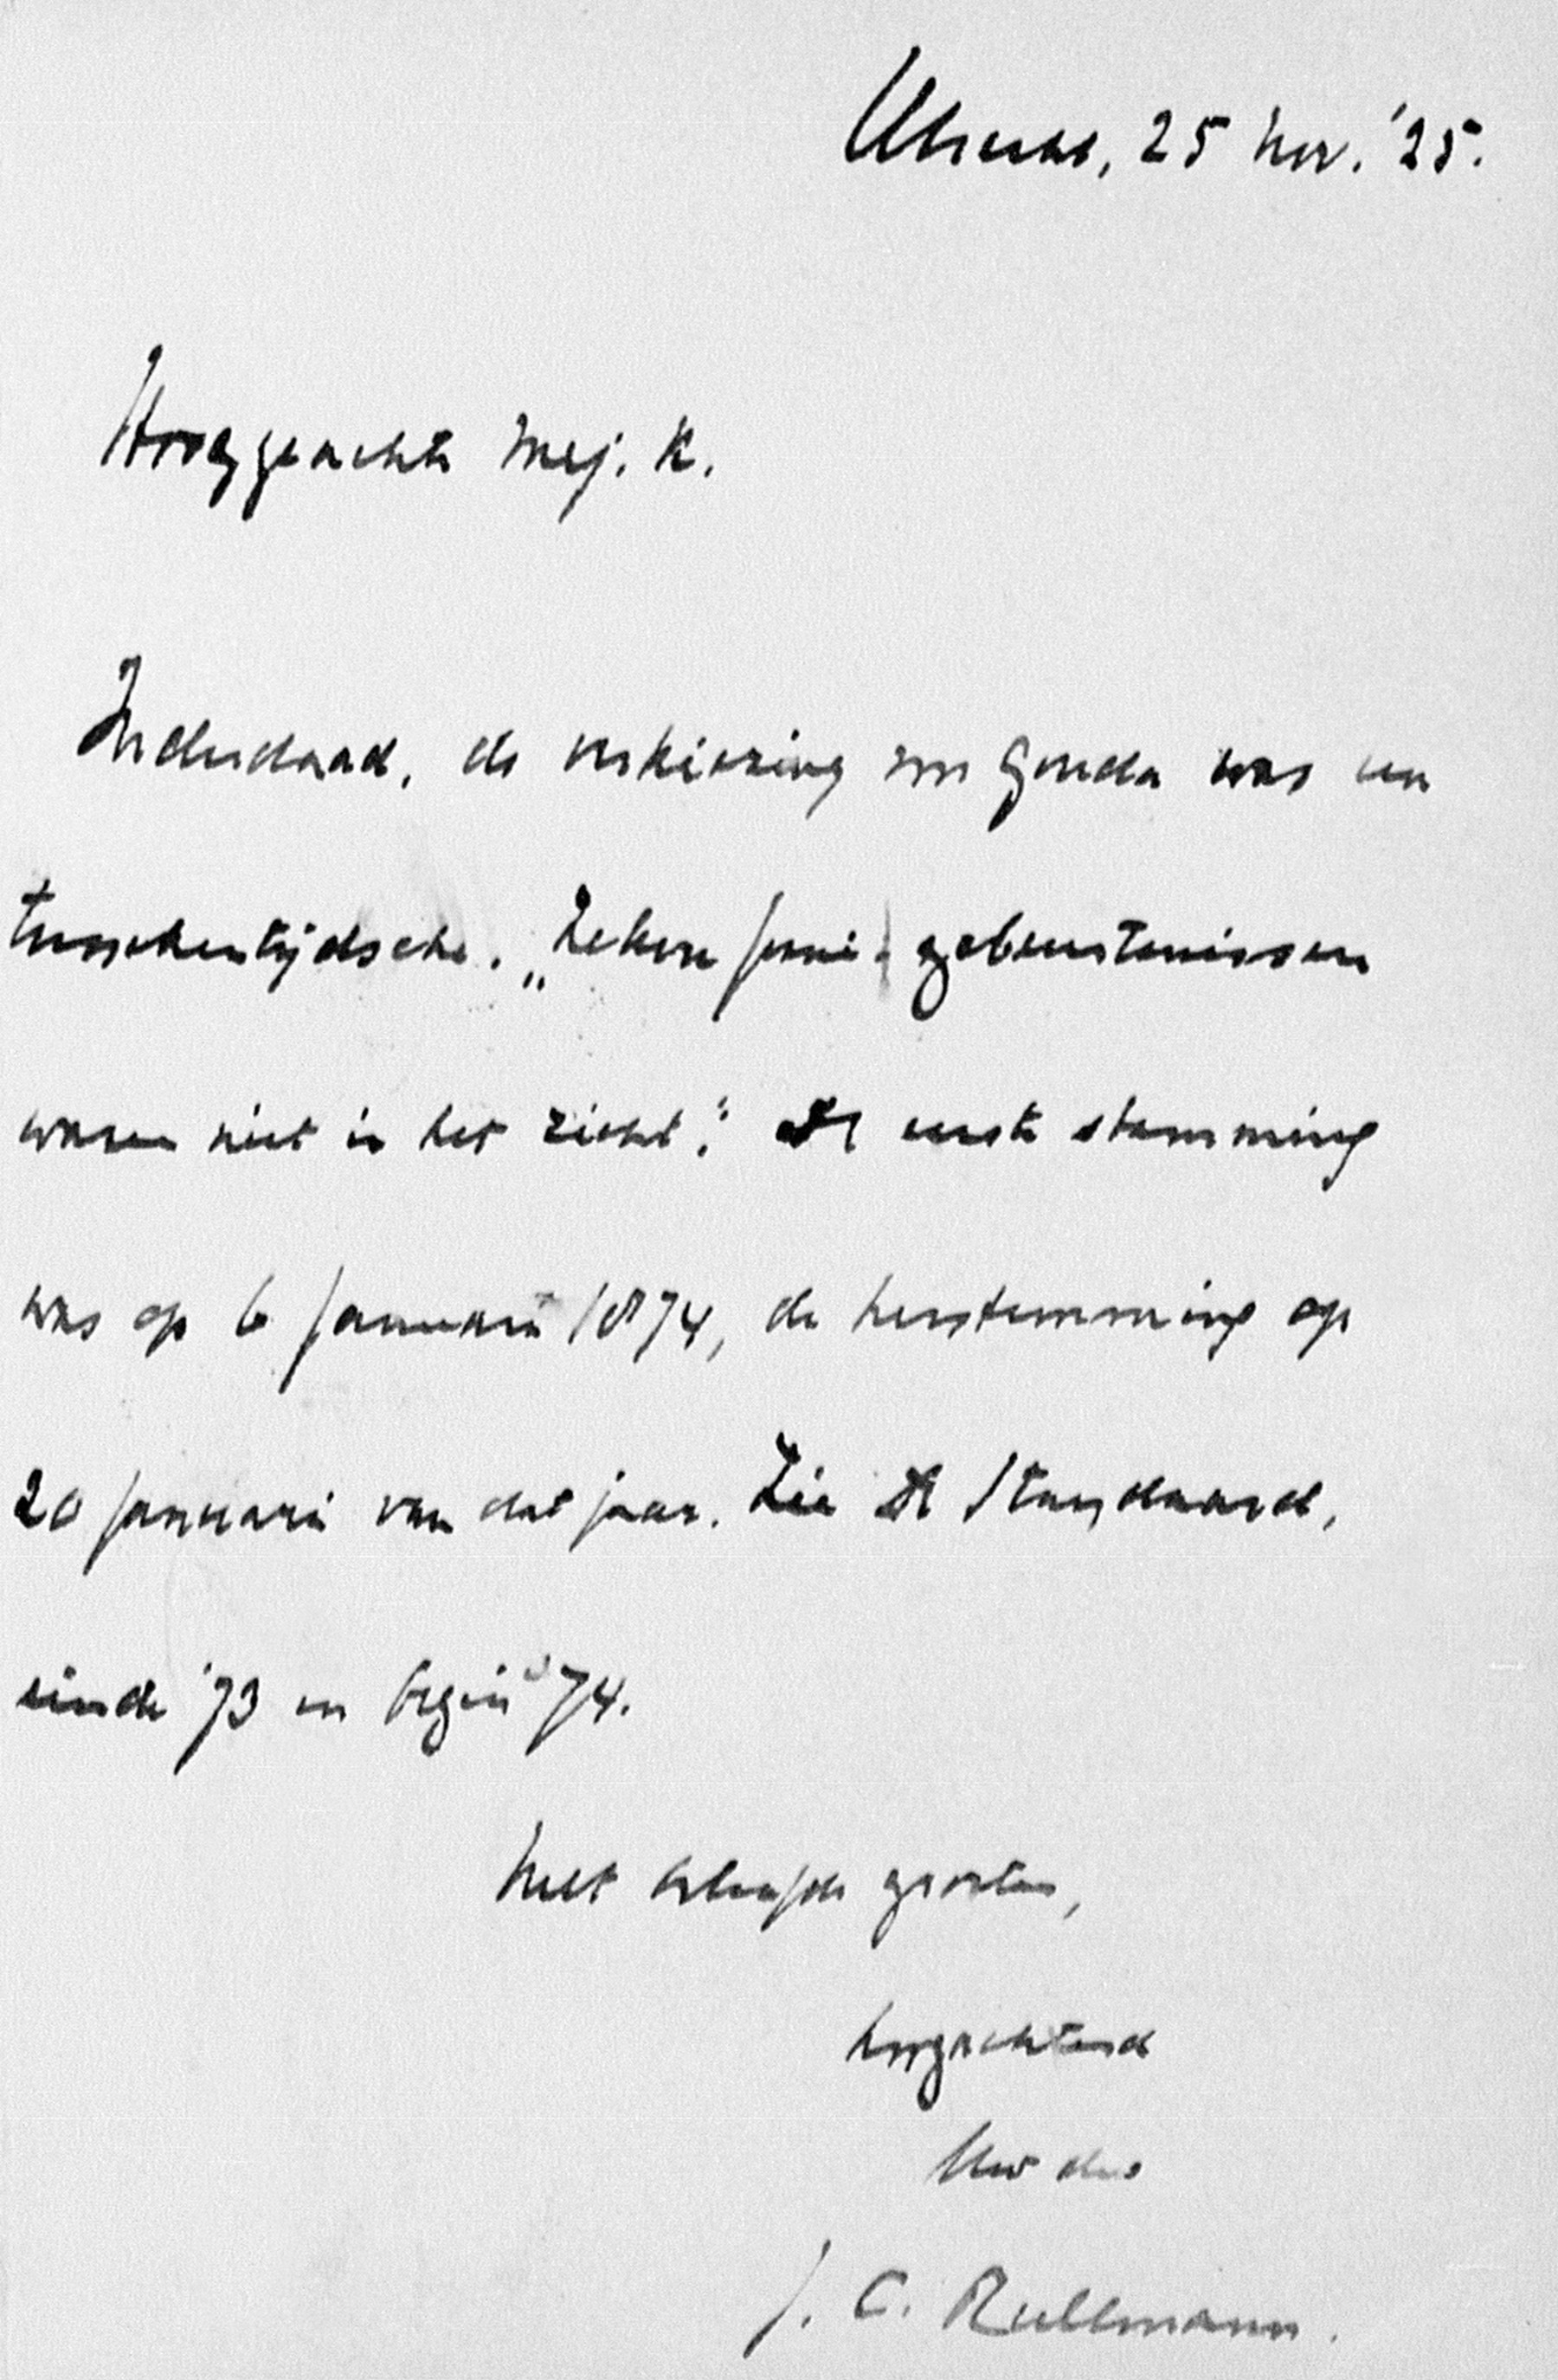 Utrecht, 25 Nov. '25.
Hooggeachte Mej. K.
Inderdaad, de verkiezing van Gouda was een
tusschentijdsche. „Zekere Juni-gebeurtenissen
waren niet in het zicht". De eerste stemming
was op 6 Januari 1874, de herstemming op
20 Januari van dat jaar. Zie De Standaard,
einde '73 en begin '74.
Met beleefde groeten,
hoogachtend
Uw dw
J. C. Rullmann.